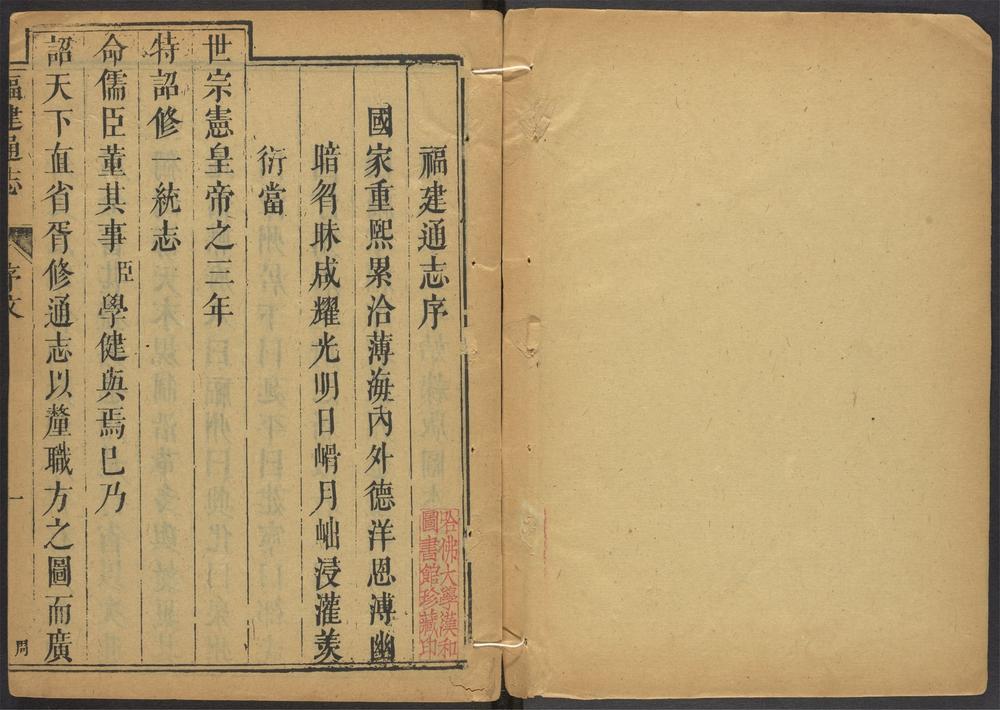 福建通志序
國家重熙累洽薄海內外德洋恩溥幽
暗曶昧咸耀光明日㟓月朏浸灌羨
衍當
世宗憲皇帝之三年
特詔修一統志
命儒臣董其事臣學健與焉已乃
詔天下直省胥修通志以釐職方之圖而廣
福建通志
序文
一
問
哈佛大學漢和
圖書館珍藏印